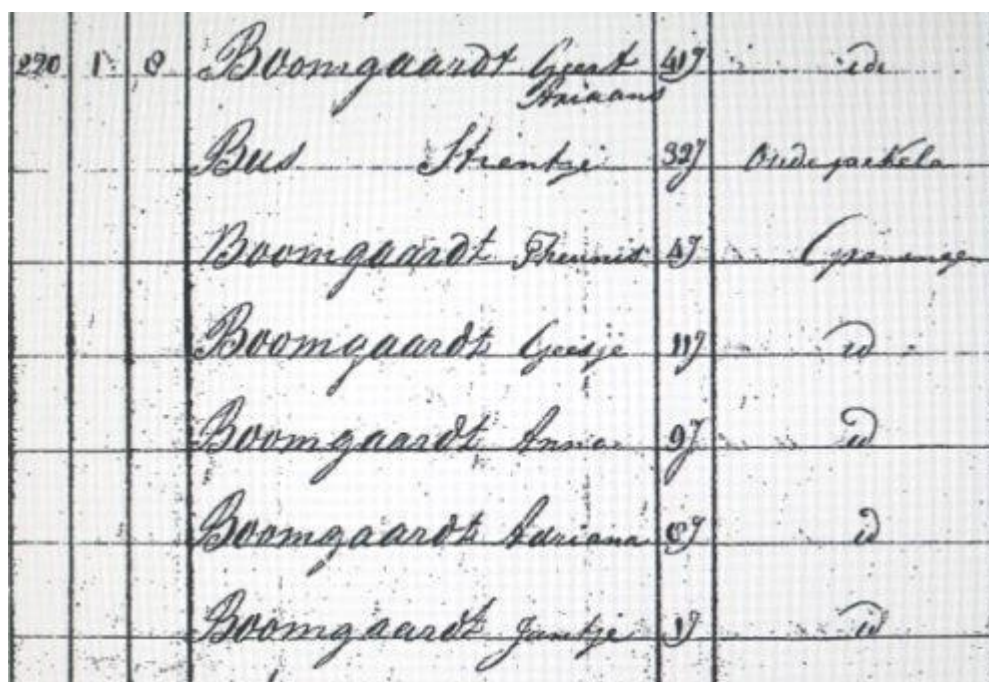 220 1 8 Boomgaardt Geert 41J id
Ariaans
Bus Strentje 32J Oude pekela
Boomgaardt Theunis 4J
Boomgaardt Geesje 11J id
Boomgaardt Anna 9J id
Boomgaardt Adriana J id
Boomgaardt Jantje 1J id